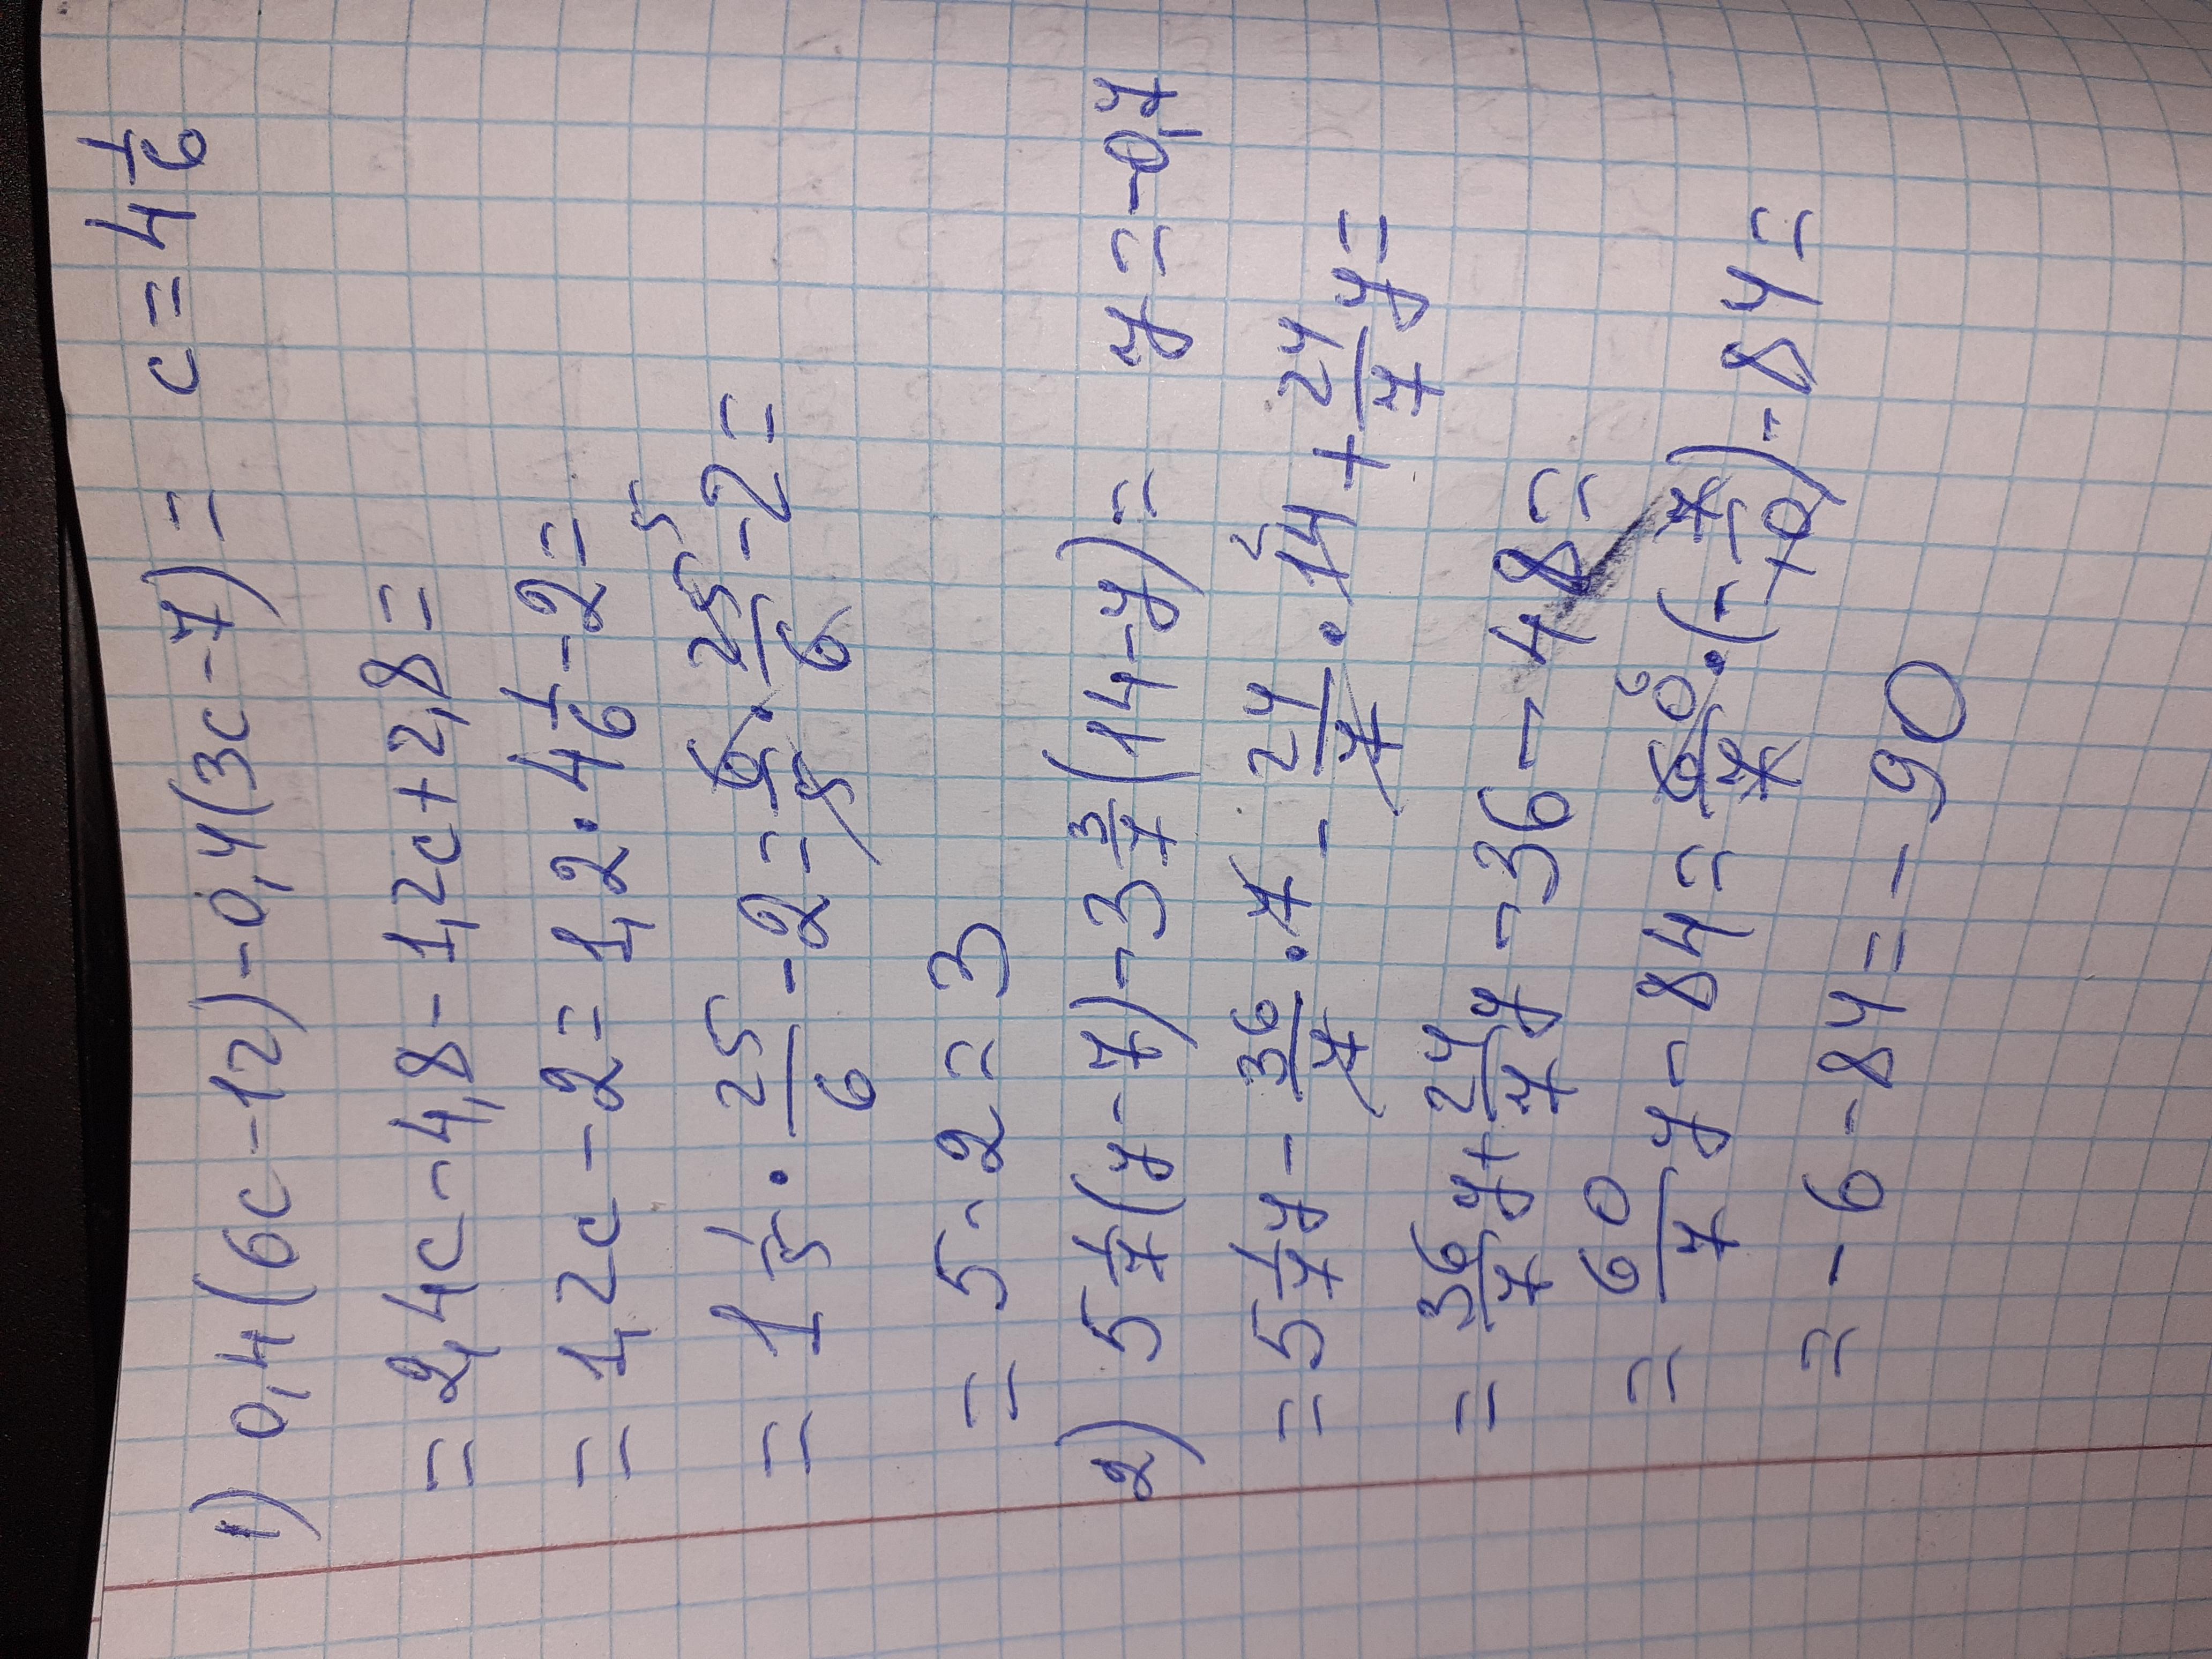 1) 0,4(6c-12)-0,4(3c-7)= c=4 1/6
=2,4c-4,8-1,2c+2,8=
=1,2c-2=1,2·4 1/6-2=
=1 1/5·25/6-2=6/5·25/6-2= 5
=5-2=3
2) 5 1/7(y-7)-3 3/7(14-y)= y=-0,7
=5 1/7y-36/7·7-24/7·14+24/7y= 2
=36/7y+24/7y-36-48=
=60/7y-84=60/7·(-7/10)-84= 6
=-6-84=-90